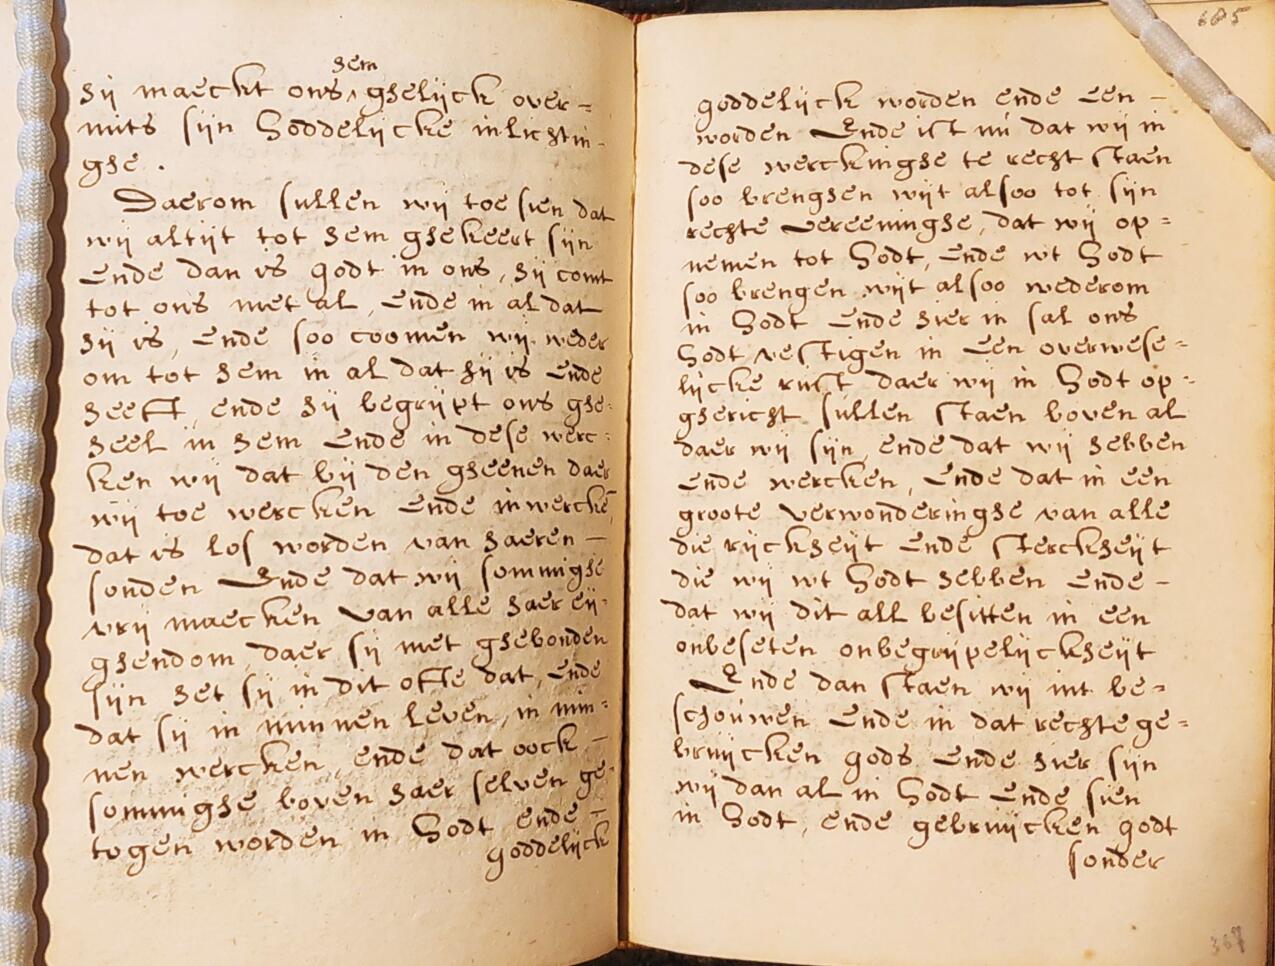 hem
hij maeckt ons ^ ghelijck over=
mits sijn Goddelijcke inlichtin-
ghe.
Daerom sullen wij toe sien dat
wij altijt tot hem ghekeert sijn
Ende dan is godt in ons, hij comt
tot ons met al, Ende in al dat
hij is, Ende soo coomen wij weder
om tot hem in al dat hij is Ende
heeft, ende hij begrijpt ons ghe=
heel in hem Ende in dese werc=
ken wij dat bij den gheenen daer
wij toe wercken Ende inwercke,
dat is los worden van haeren –
sonden Ende dat wij sommighe
vrij maecken van alle haer eij=
ghendom, daer sij met ghebonden
sijn het sij in dit ofte dat, Ende
dat sij in minnen leven, in min=
nen wercken, ende dat oock –
sommighe boven haer selven ge=
togen worden in Godt ende –
goddelijck
685
goddelijck worden ende Een –
worden Ende ist nu dat wij in
dese werckinghe te recht staen
soo brenghen wijt alsoo tot sijn
rechte vereeninghe, dat wij op=
nemen tot Godt, Ende wt Godt
soo brengen wijt alsoo wederom
in Godt Ende hier in sal ons
Godt vestigen in Een overwese=
lijcke rust daer wij in Godt op=
ghericht sullen staen boven al
daer wij sijn, ende dat wij hebben
Ende wercken, Ende dat in een
groote verwonderinghe van alle
die rijckheijt Ende sterckheijt
die wij wt Godt hebben Ende –
dat wij dit all besitten in een
onbeseten onbegrijpelijckheijt
Ende dan staen wij int be=
schouwen Ende in dat rechte ge=
bruijcken gods Ende hier sijn
wij dan al in Godt Ende sien
in Godt, ende gebruijcken godt
sonder
367